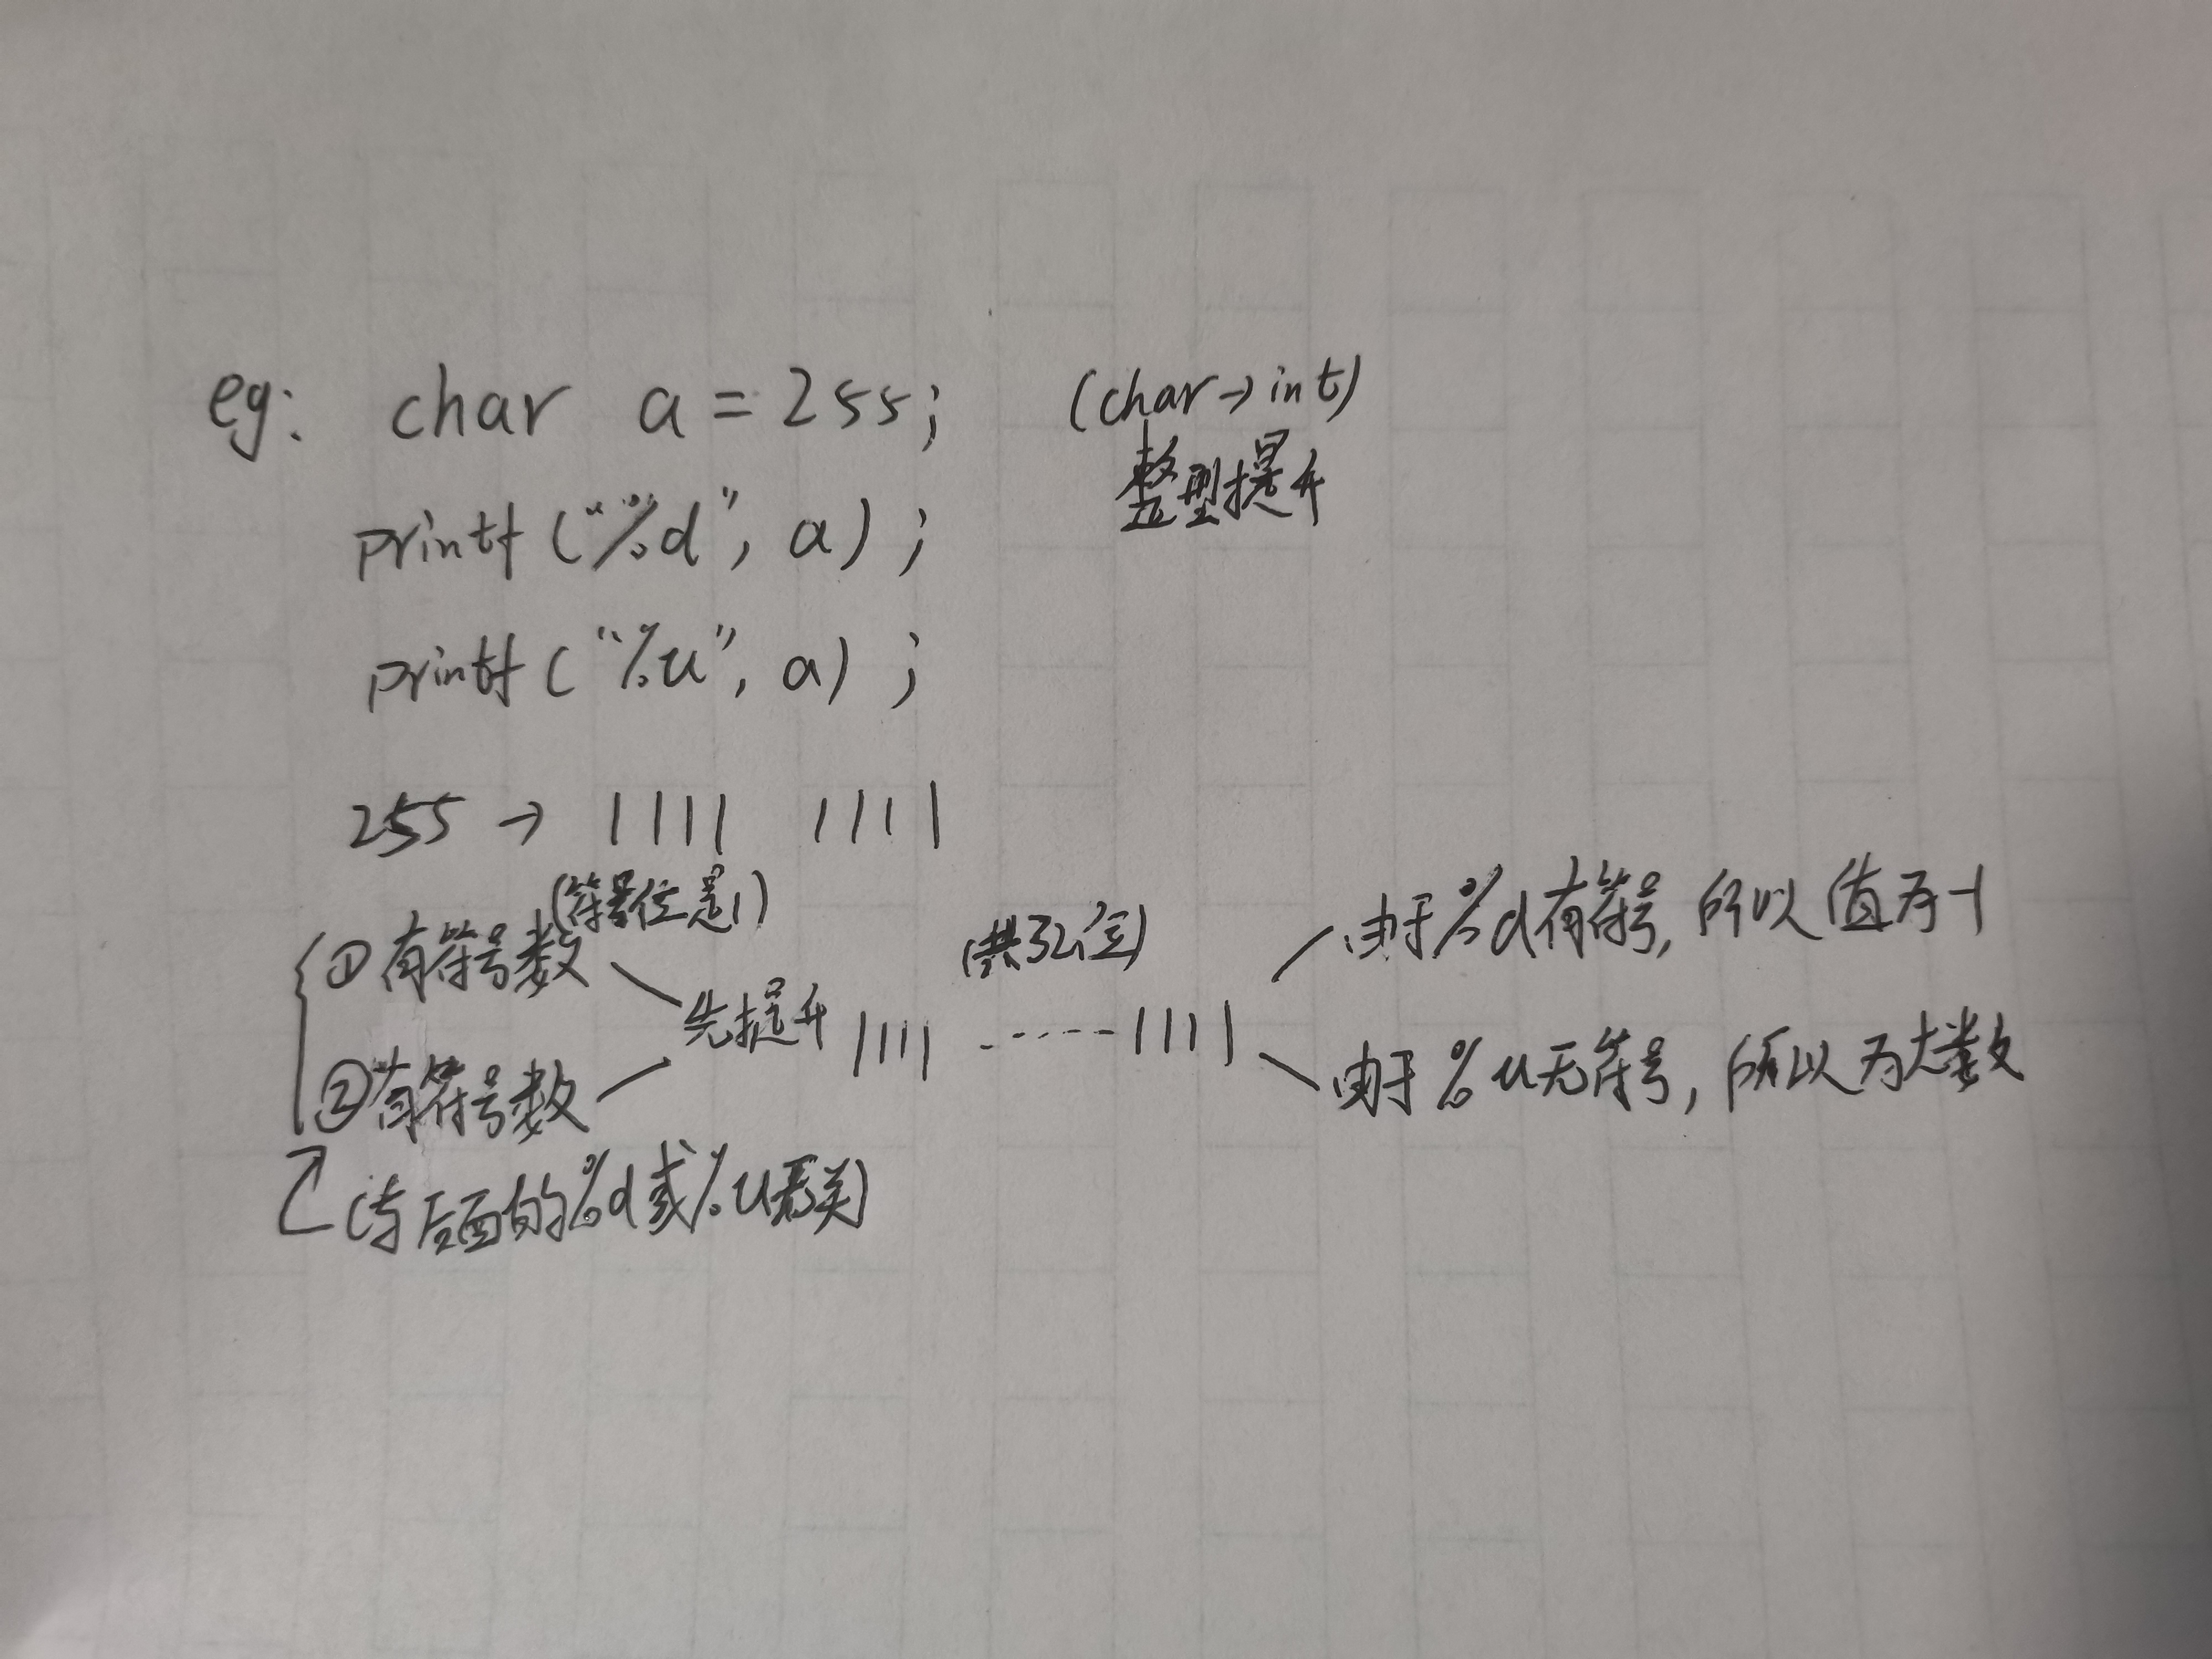 eg: char a = 255; (char→int)
整型提升
printf("%d", a);
printf("%u", a);
255 → 1111 1111
(符号位是1)
①有符号数
②有符号数
先提升 1111 ······1111
(共32位)
由于%d有符号,所以值为-1
由于%u无符号,所以为大数
(与后面的%d或%u无关)